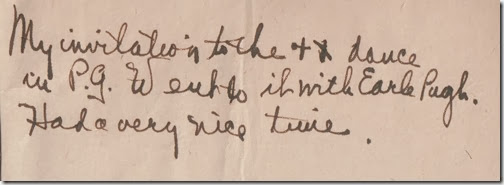 My invitation to the dance
in P.G. Went to it with Earle Pugh.
Had a very nice time.